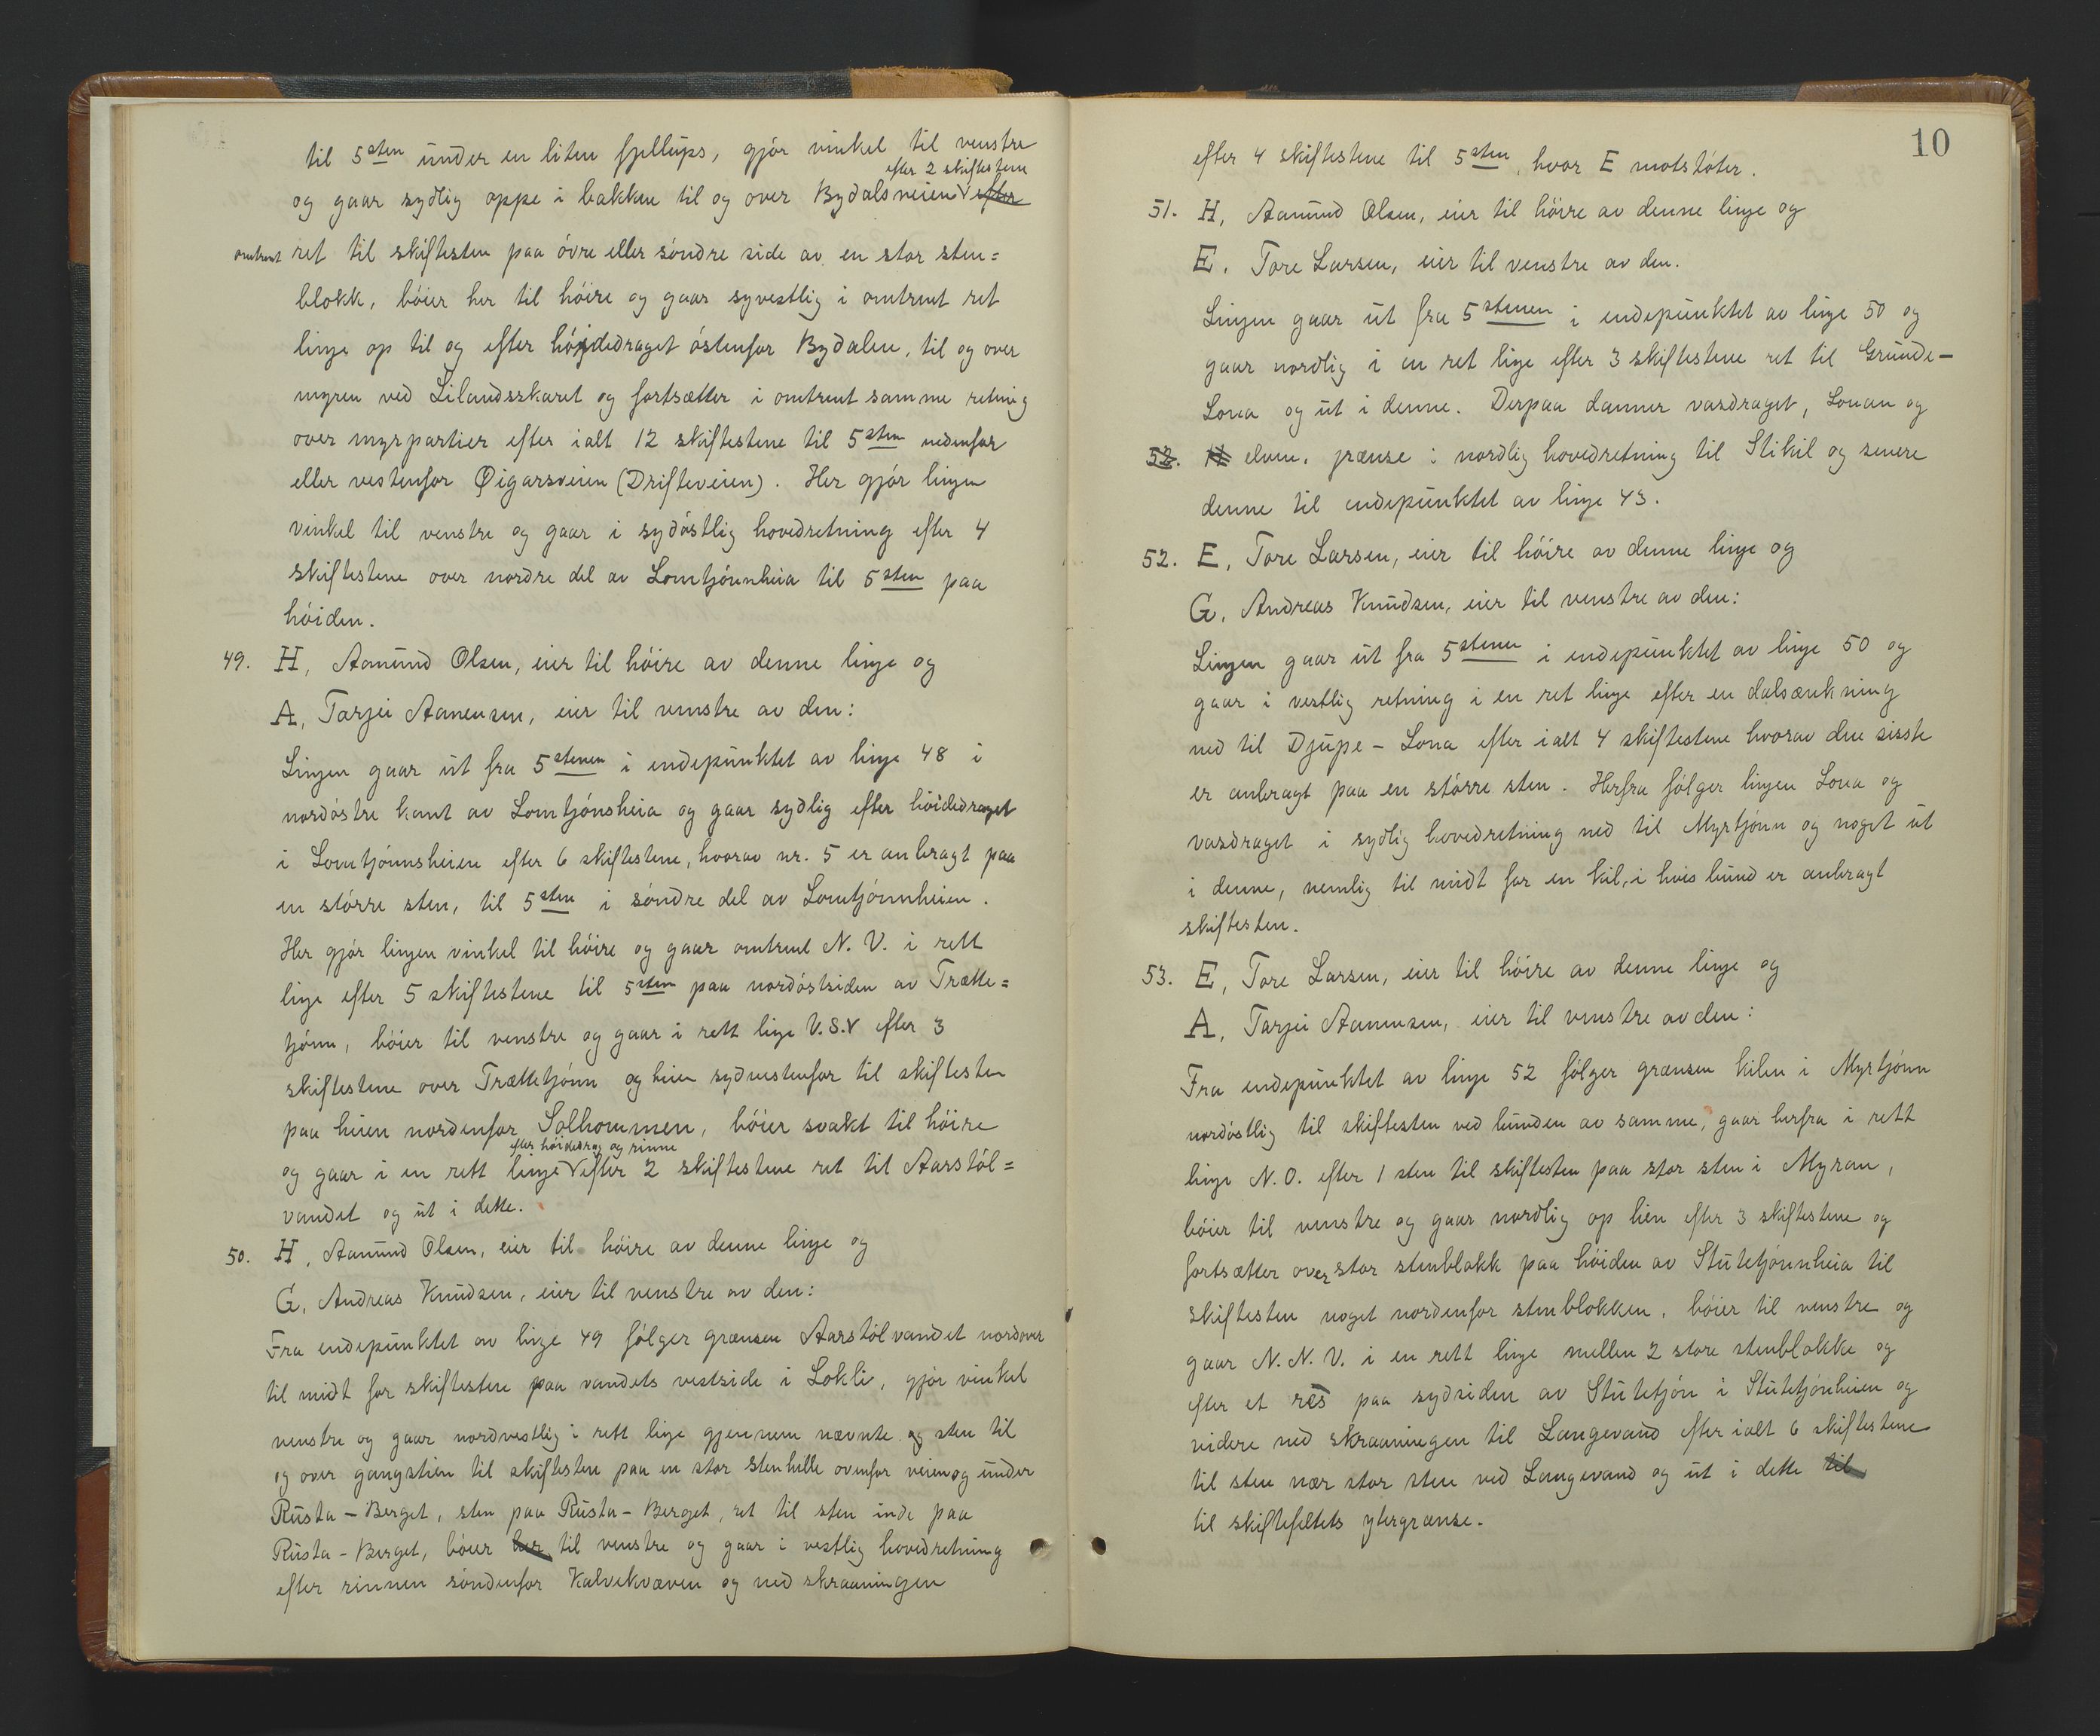 til 5sten under en liten fjellups, gjör vinkel til venstre
efter 2 skiftestene
og gaar sydlig oppe i bakken til og over Bydalsveien efter
omtrent ret til skiftesten paa övre eller söndre side av en stor sten=
blokk, böier her til höire og gaar syvestlig i omtrent ret
linje op til og efter höidedraget östenfor Bydalen, til og over
myren ved Lilandsskaret og fortsætter i omtrent samme retning
over myrpartier efter ialt 12 skiftestene til 5sten nedenfor
eller vestenfor Øigarsveien (Drifteveien). Her gjör linjen
vinkel til venstre og gaar i sydöstlig hovedretning efter 4
skiftestene over nordre del av Lomtjönnheia til 5sten paa
höiden.
49. H, Aamund Olsen, eier til höire av denne linje og
A, Tarjei Aanensen, eier til venstre av den:
Linjen gaar ut fra 5stenen i endepunktet av linje 48 i
nordöstre kant av Lomtjönsheia og gaar sydlig efter höidedraget
i Lomtjönnsheien efter 6 skiftestene, hvorav nr. 5 er anbragt paa
en större sten, til 5sten i söndre del av Lomtjönnheien.
Her gjör linjen vinkel til höire og gaar omtrent N. V. i rett
linje efter 5 skiftestene til 5sten paa nordöstsiden av Trætte=
tjönn, böier til venstre og gaar i rett linje V.S.V efter 3
skiftestene over Trættetjönn og heien sydvestenfor til skiftesten
paa heien nordenfor Solhommen, böier svakt til höire
efter höidedrag og rinne
og gaar i en rett linje efter 2 skiftestene ret til Aarstöl=
vandet og ut i dette.
50. H, Aamund Olsen, eier til höire av denne linje og
G, Andreas Knudsen, eier til venstre av den:
Fra endepunktet av linje 49 fölger grænsen Aarstölvandet nordover
til midt for skiftestene paa vandets vestside i Lokli, gjör vinkel
venstre og gaar nordvestlig i rett linje gjennem nævnte og sten til
og over gangstien til skiftestene paa en stor stenhelle ovenfor veien og under
Rusta-Berget, sten paa Rusta-Berget, ret til sten inde paa
Rusta-Berget, böier her til venstre og gaar i vestlig hovedretning
efter rinnen söndenfor Kalvekvæven og ned skraaningen
10
efter 4 skiftestene til 5sten, hvor E motstöter.
51. H, Aamund Olsen, eier til höire av denne linje og
E. Tore Larsen, eier til venstre av den.
Linjen gaar ut fra 5stenen i endepunktet av linje 50 og
gaar nordlig i en ret linje efter 3 skiftestene ret til Grunde-
Lona og ut i denne. Derpaa danner vasdraget, Lonan og
52. H elven, grænse i nordlig hovedretning til Stikil og senere
denne til endepunktet av linje 43.
52. E, Tore Larsen, eier til höire av denne linje og
G, Andreas Knudsen, eier til venstre av den:
Linjen gaar ut fra 5stenen i endepunktet av linje 50 og
gaar i vestlig retning i en ret linje efter en dalsænkning
ned til Djupe-Lona efter ialt 4 skiftestene hvorav den sisste
er anbragt paa en större sten. Herfra fölger linjen Lona og
vasdraget i sydlig hovedretning ned til Myrtjönn og noget ut
i denne, nemlig til midt for en kil, i hvis bund er anbragt
skiftesten.
53. E, Tore Larsen, eier til höire av denne linje og
A, Tarjei Aanensen, eier til venstre av den:
Fra endepunktet av linje 52 fölger grænsen kilen i Myrtjönn
nordöstlig til skiftesten ved bunden av samme, gaar herfra i rett
linje N.O. efter 1 sten til skiftesten paa stor sten i Myran,
böier til venstre og gaar nordlig op lien efter 3 skiftestene og
fortsætter over stor stenblokk paa höiden av Stutetjönnheia til
skiftesten noget nordenfor stenblokken, böier til venstre og
gaar N.N.V. i en rett linje mellen 2 store stenblokke og
efter et res paa sydsiden av Stutetjön i Stutetjönheien og
videre ned skraaningen til Langevand efter ialt 6 skiftestene
til sten nær stor sten ved Langevand og ut i dette til
til skiftefeltets ytergrænse.